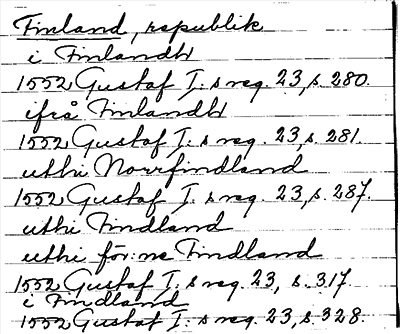 Finland, republik
i Finlandh
1552 Gustaf I:s reg. 23, s. 280.
ifrå Finlandh
1552 Gustaf I:s reg. 23, s. 281.
uthi Norrfindland
1552 Gustaf I:s reg. 23, s. 287.
uthi Findland
uthi för:ne Findland
1552 Gustaf I:s reg. 23, s. 317.
i Findland
1552 Gustaf I:s reg. 23, s. 328.